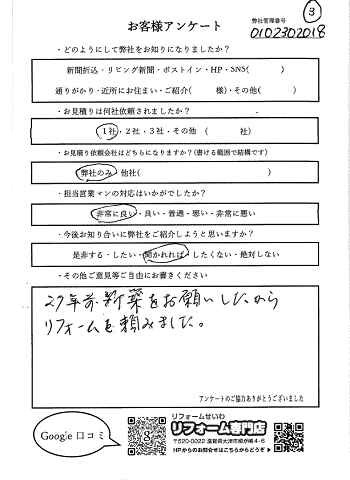 ③
お客様アンケート
弊社管理番号
0102302018
・どのようにして弊社をお知りになりましたか？
新聞折込・リビング新聞・ポストイン・HP・SNS(　　　)
通りがかり・近所にお住まい・ご紹介(　　　様)・その他(　　　)
・お見積りは何社依頼されましたか？
1社・2社・3社・その他　(　　　社)
・お見積り依頼会社はどちらになりますか？(書ける範囲で結構です)
弊社のみ　他社(　　　)
・担当営業マンの対応はいかがでしたか？
非常に良い・良い・普通・悪い・非常に悪い
・今後お知り合いに弊社をご紹介しようと思いますか？
是非する・したい・聞かれれば・したくない・絶対しない
・その他ご意見等ご自由にお書きください
27年前新築をお願いしたから
リフォームを頼みました。
アンケートのご協力ありがとうございました
Google 口コミ
リフォームせいわ
リフォーム専門店
〒520-0022 滋賀県大津市柳が崎4-6
HPからのお問合せはこちらからどうぞ▶